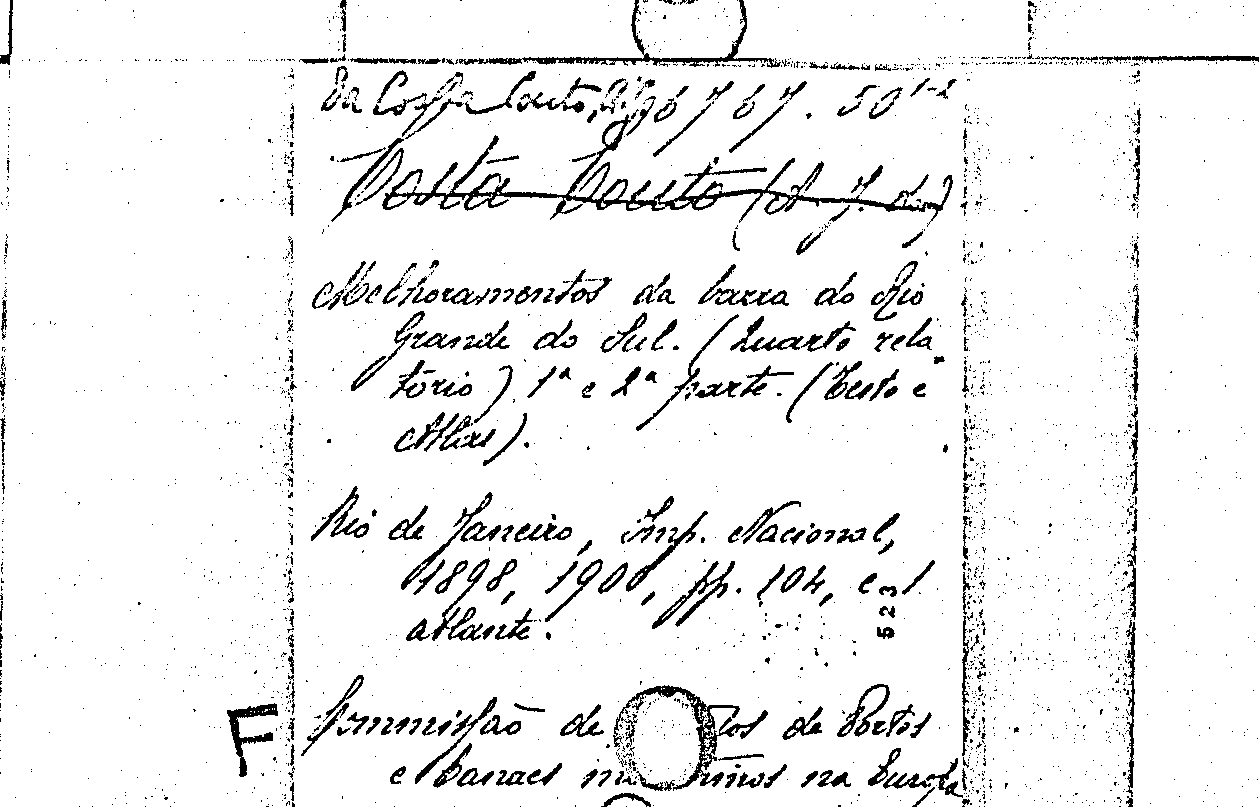 Da Costa Couto, 6767.50 1-2
Costa Couto (A. J. da)
Melhoramentos da barra do Rio
Grande do Sul. (Quarto rela
tório) 1ª e 2ª parte. (Testo e
Atlas).
Rio de Janeiro, Imp. Nacional,
1898, 1900, pp. 104, e 1
atlante.
523
F
Commissão de de Portos
e Canaes na Europa